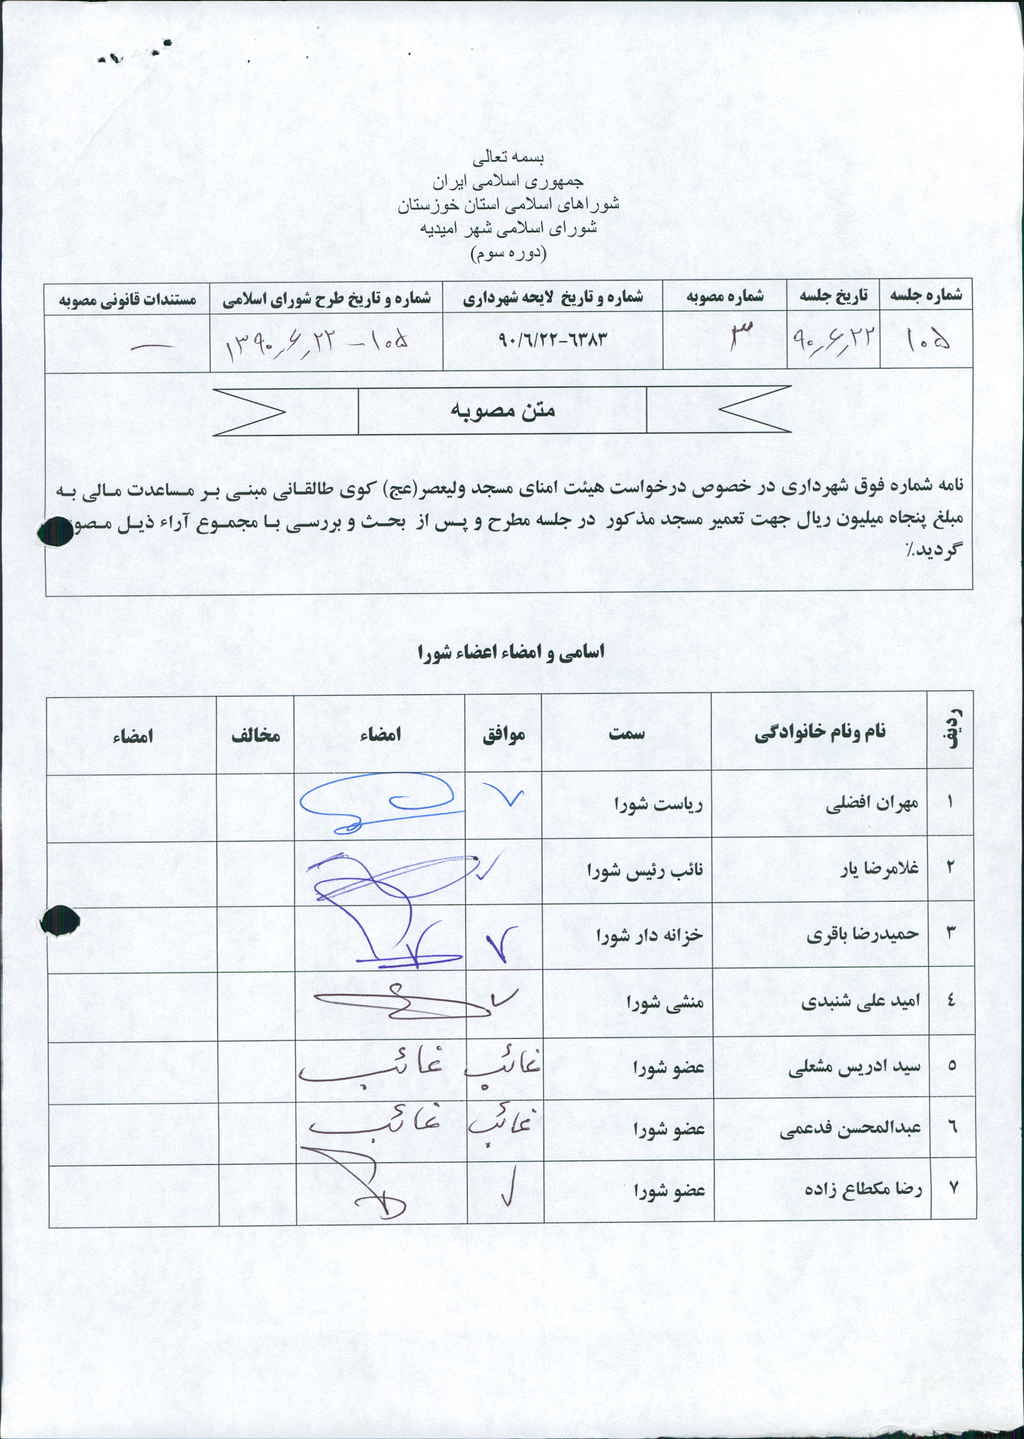 بسمه تعالی
جمهوری اسلامی ایران
شوراهای اسلامی استان خوزستان
شورای اسلامی شهر امیدیه
(دوره سوم)
شماره جلسه تاریخ جلسه شماره مصوبه شماره و تاریخ لایحه شهرداری شماره و تاریخ طرح شورای اسلامی مستندات قانونی مصوبه
۱۰۵ ۹۰٫۶٫۲۲ ۳ ۹۰/٦/۲۲-٦۳۸۳ ۱۰۵ - ۱۳۹۰٫۶٫۲۲ —
متن مصوبه
نامه شماره فوق شهرداری در خصوص درخواست هیئت امنای مسجد ولیعصر(عج) کوی طالقانی مبنی بر مساعدت مالی به
مبلغ پنجاه میلیون ریال جهت تعمیر مسجد مذکور در جلسه مطرح و پس از بحث و بررسی با مجموع آراء ذیل مصو
گردید٪
اسامی و امضاء اعضاء شورا
ردیف نام ونام خانوادگی سمت موافق امضاء مخالف امضاء
۱ مهران افضلی ریاست شورا ✓
۲ غلامرضا یار نائب رئیس شورا ✓
۳ حمیدرضا باقری خزانه دار شورا ✓
٤ امید علی شنبدی منشی شورا ✓
٥ سید ادریس مشعلی عضو شورا غائب غائب
٦ عبدالمحسن فدعمی عضو شورا غائب غائب
۷ رضا مکطاع زاده عضو شورا ✓